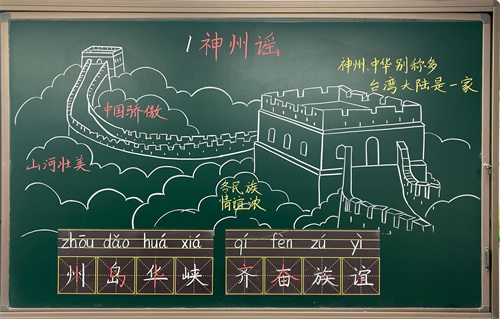 1神州谣
神州、中华别称多
台湾大陆是一家
中国骄傲
山河壮美
各民族
情谊浓
zhōu dǎo huá xiá
州岛华峡
qí fèn zú yì
齐奋族谊